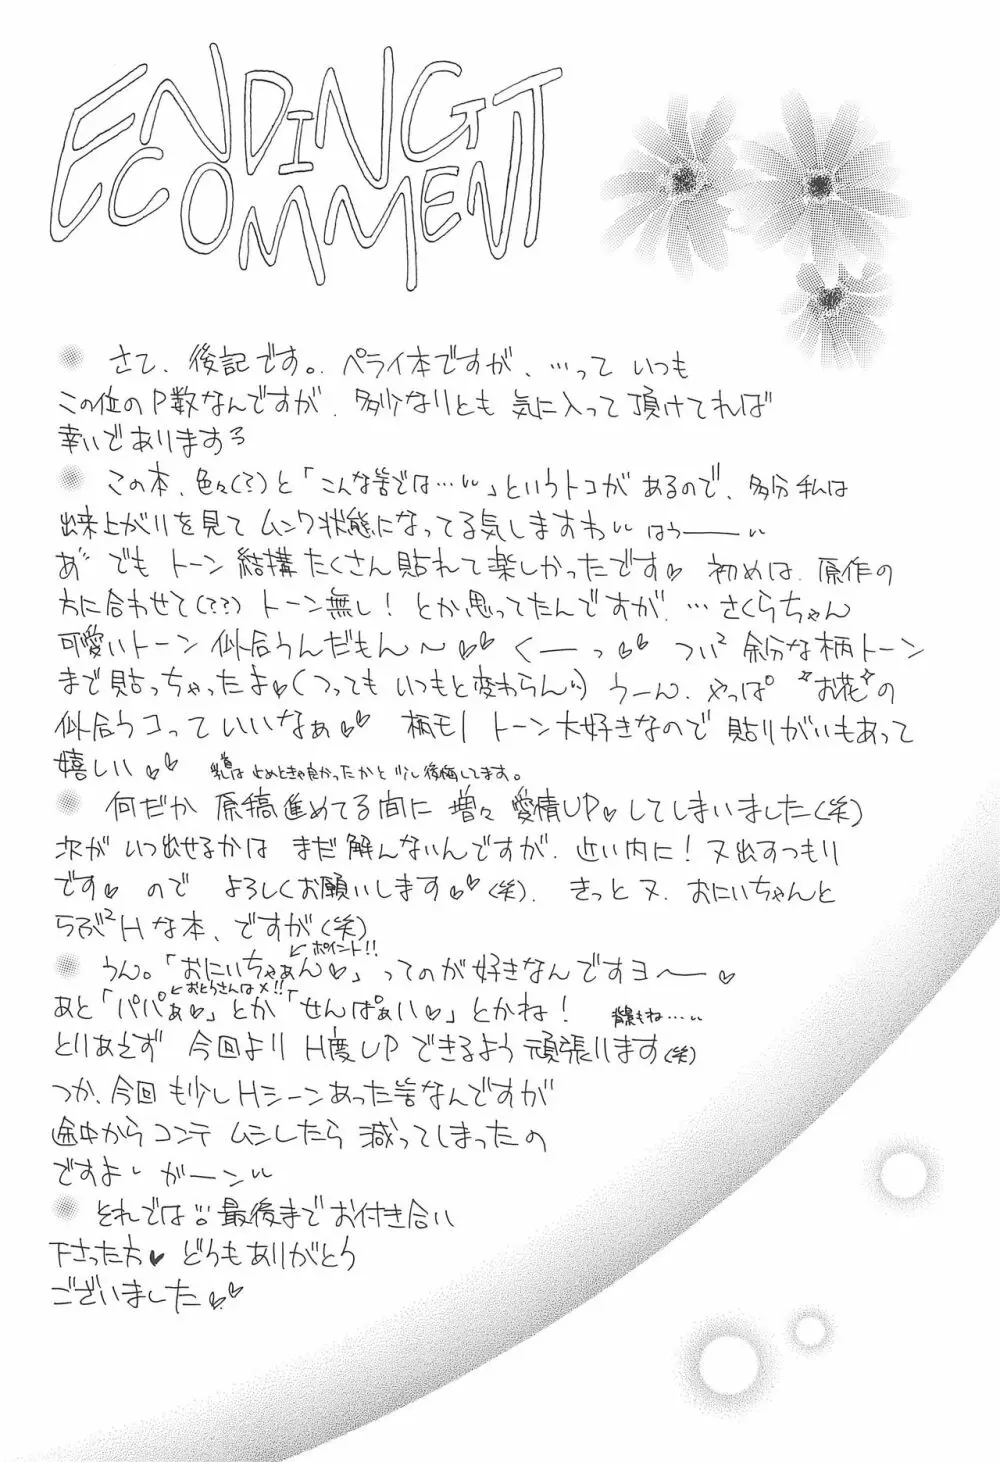 ENDING
COMMENT
さて、後記です。ペライ本ですが、…って いつも
この位のP数なんですが、多少なりとも 気に入って 頂けてれば
幸いでありまする
この本、色々(?)と「こんな筈では…」というトコがあるので、多分私は
出来上がりを見て ムンク状態になってる気しますわ はうー
あ゛ でも トーン 結構 たくさん貼れて楽しかったです♥ 初めは、原作の
方に合わせて(??) トーン無し! とか思ってたんですが、…さくらちゃん
可愛いトーン 似合うんだもん〜♥♥ くーっ♥♥ つい² 余分な柄トーン
まで貼っちゃったよ♥(つっても いつもと変わらん) うーん、やっぱ お花の
似合うコって いいなぁ♥♥ 柄モノトーン大好きなので 貼りがいもあって
嬉しい♥♥ はやめときゃ良かったかと 少し後悔してます。
何だか 原稿進めてる間に 増々 愛情UP♥してしまいました(笑)
次が いつ出せるかは まだ解んないんですが、近い内に! 又出すつもり
です♥ ので よろしくお願いします♥♥(笑)、 きっと 又、おにいちゃんと
らぶ²Hな本、ですが(笑)
ポイント!!
うん。「おにいちゃぁん♥」ってのが好きなんですヨー♥
おとうさんはメ!!
あと「パパぁ♥」とか「せんぱぁい♥」とかね! 背景もね…
とりあえず 今回より H度UP できるよう 頑張ります(笑)
つか、今回 も少しHシーンあった筈なんですが
途中から コンテ ムシしたら 減ってしまったの
ですよ がーン
それでは 最後まで お付き合い
下さった方♥ どうもありがとう
ございました♥♥